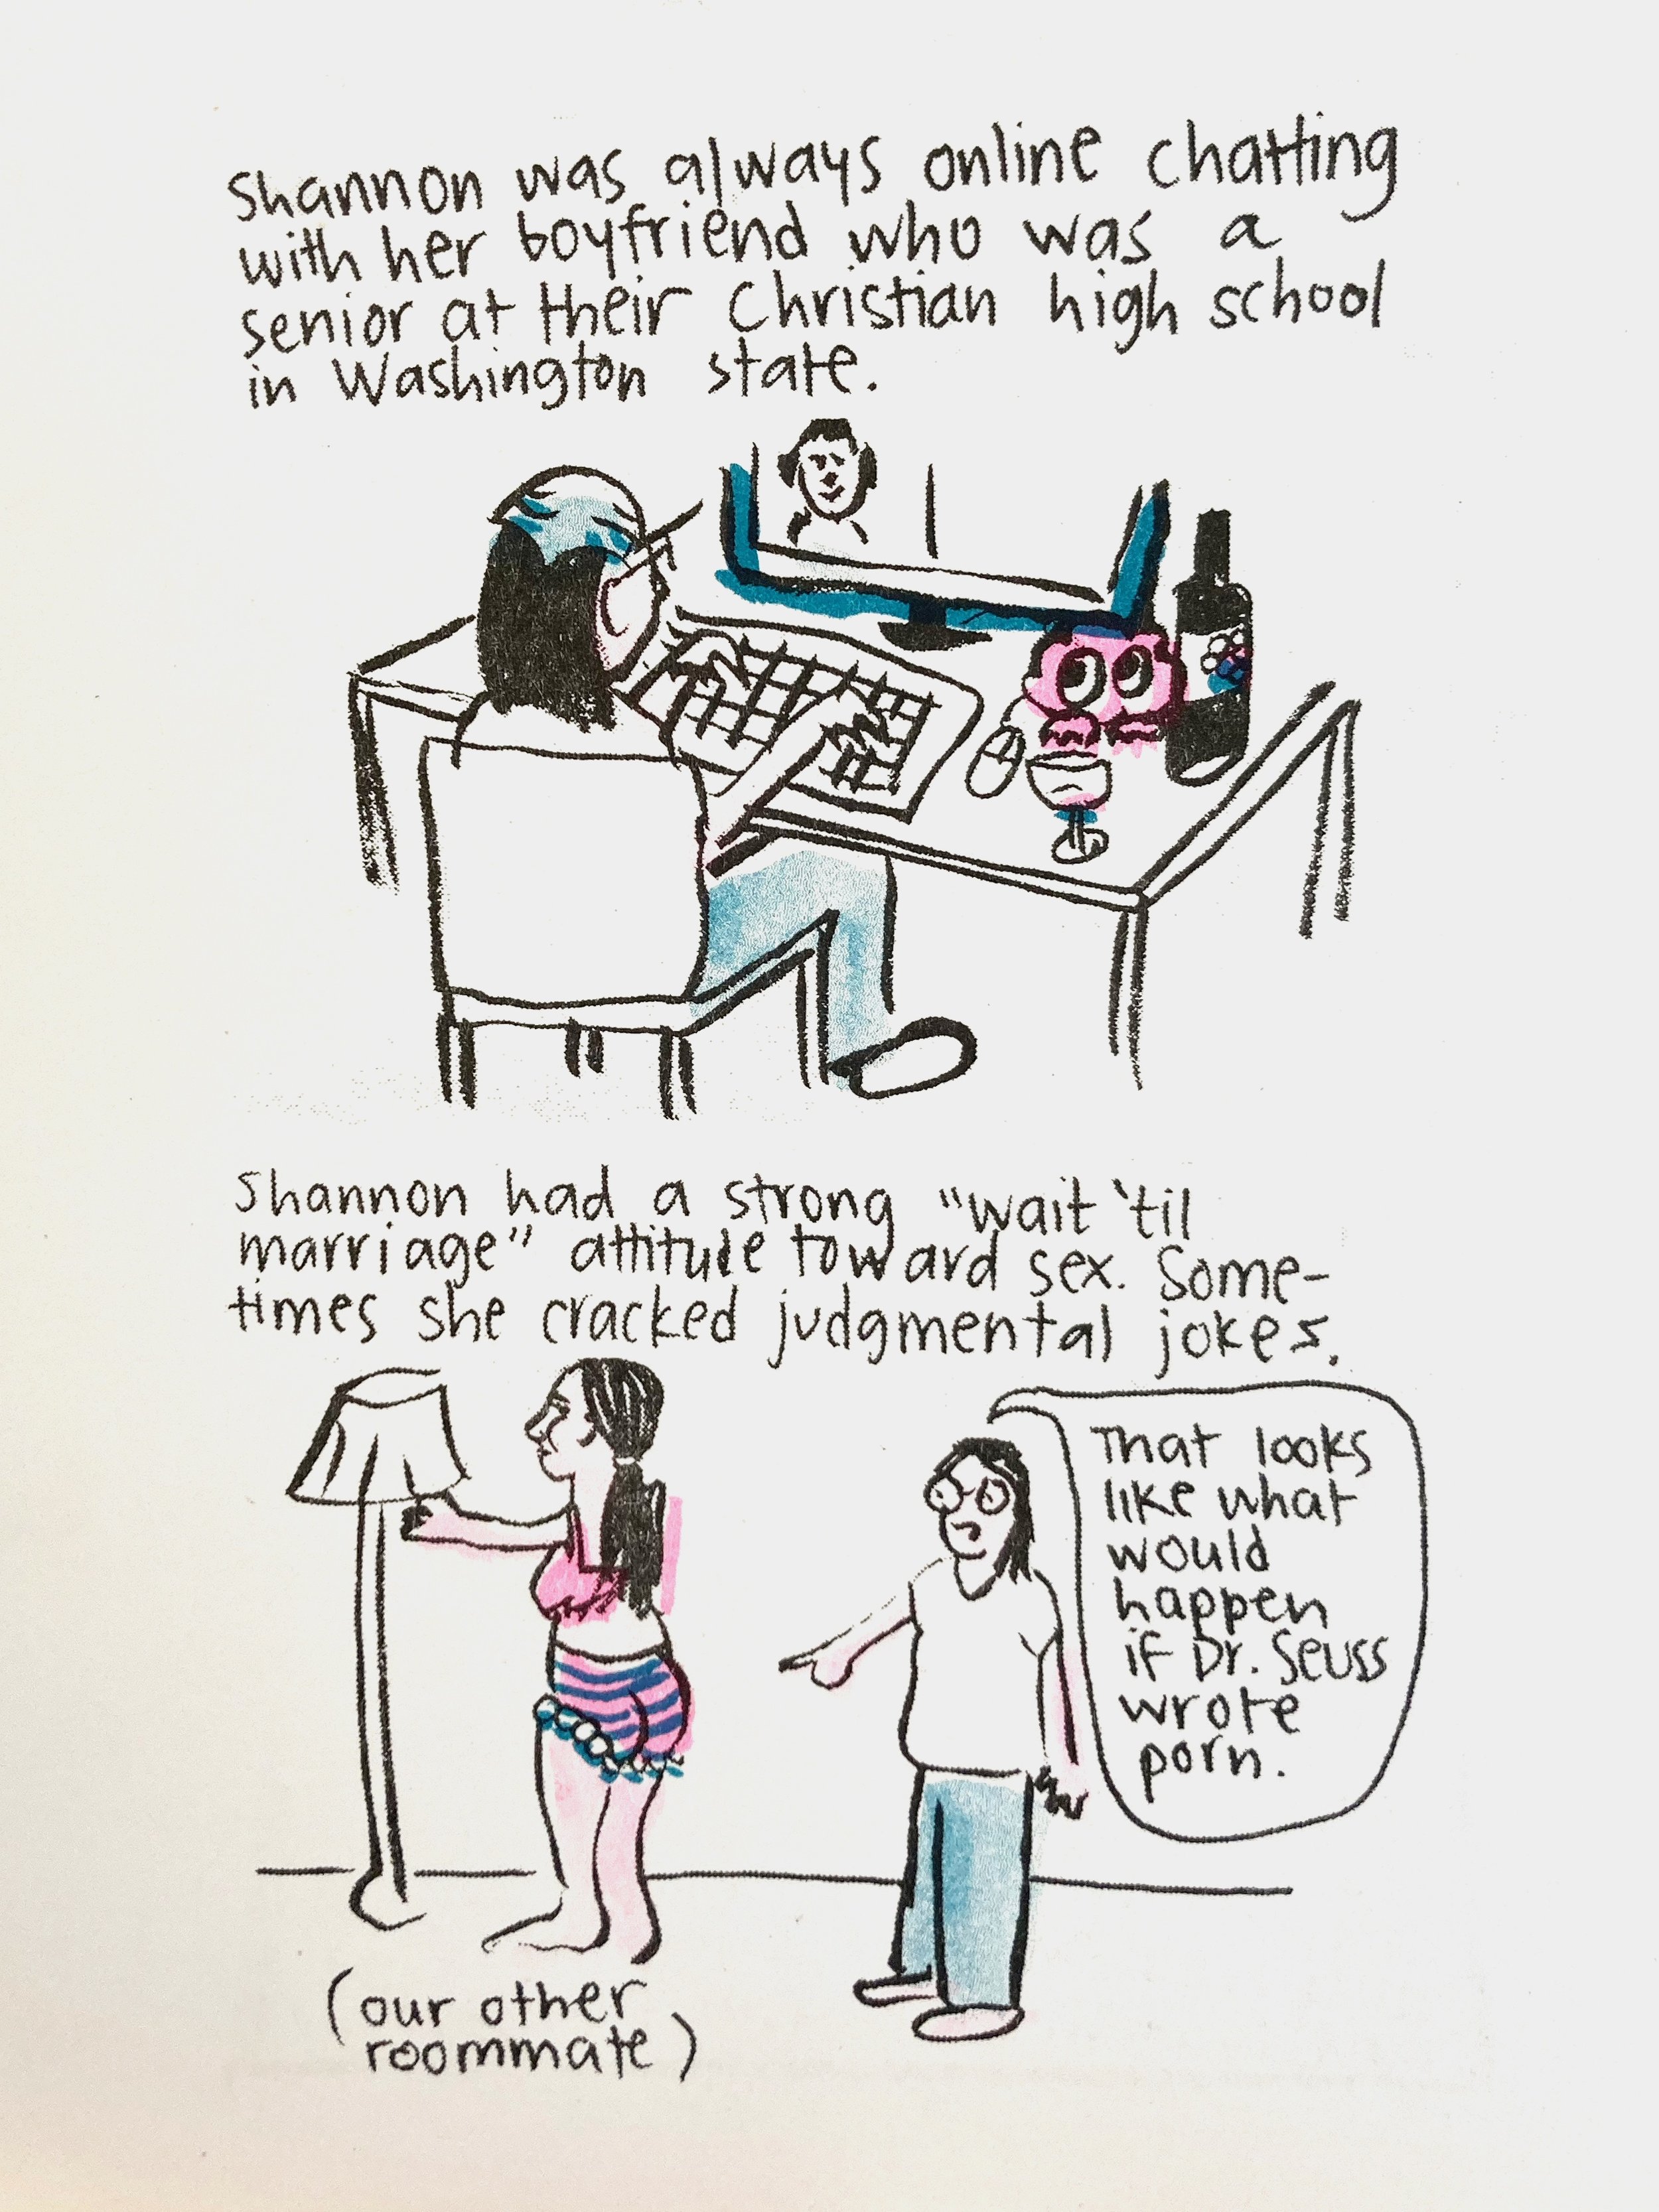 Shannon was always online chatting
with her boyfriend who was a
senior at their Christian high school
in Washington state.
Shannon had a strong "wait 'til
marriage" attitude toward sex. Some-
times she cracked judgmental jokes.
That looks
like what
would
happen
if Dr. Seuss
wrote
porn.
(our other
roommate)